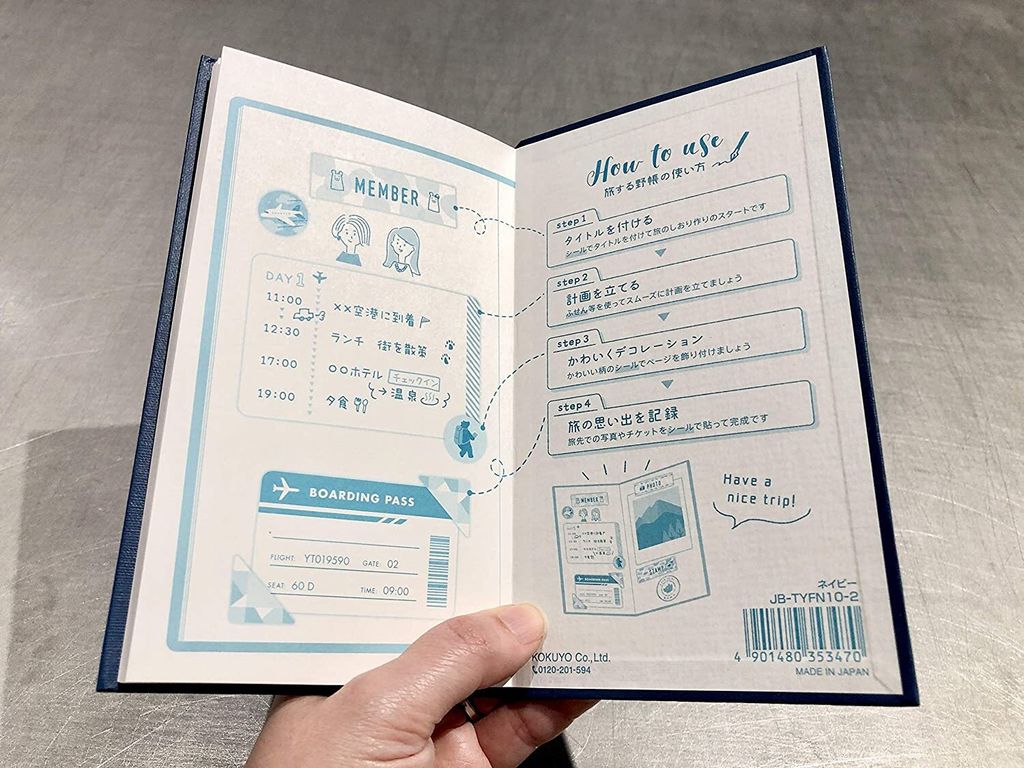 MEMBER
DAY 1
11:00 ××空港に到着
12:30 ランチ 街を散策
17:00 ○○ホテル チェックイン
→温泉
19:00 夕食
BOARDING PASS
FLIGHT: YT019590 GATE: 02
SEAT: 60 D TIME: 09:00
How to use
旅する野帳の使い方
step1
タイトルを付ける
シールでタイトルを付けて旅のしおり作りのスタートです
step2
計画を立てる
ふせん等を使ってスムーズに計画を立てましょう
step3
かわいくデコレーション
かわいい柄のシールでページを飾り付けましょう
step4
旅の思い出を記録
旅先での写真やチケットをシールで貼って完成です
MEMBER
PHOTO
BOARDING PASS
Have a
nice trip!
ネイビー
JB-TYFN10-2
4 901480 353470
MADE IN JAPAN
KOKUYO Co.,Ltd.
0120-201-594